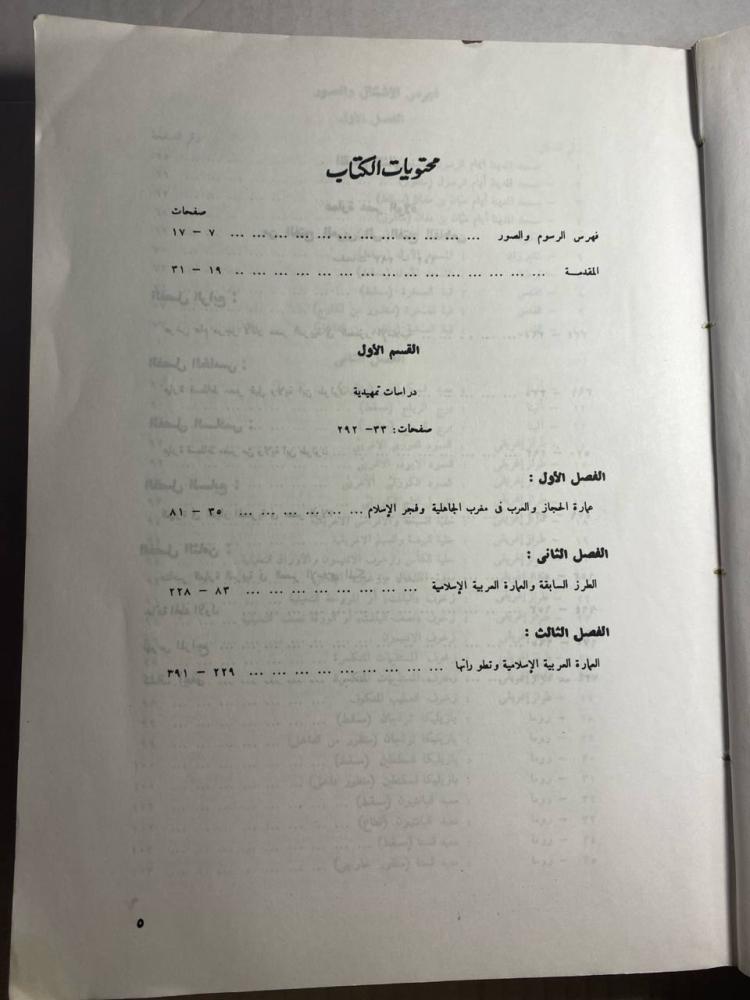 محتويات الكتاب
صفحات
فهرس الرسوم والصور ... ... ... ... ... ... ... ... ... ... ... ... ٧ – ١٧
المقدمة ... ... ... ... ... ... ... ... ... ... ... ... ... ... .. ١٩ – ٣١
القسم الأول
دراسات تمهيدية
صفحات : ٣٣ - ٢٩٢
الفصل الأول :
عمارة الحجاز والعرب فى مغرب الجاهلية وفجر الإسلام ... ... ... ... ... ... ٣٥ – ٨١
الفصل الثانى :
الطرز السابقة والعمارة العربية الإسلامية ... ... ... ... ... ... ... ... ٨٣ – ٢٢٨
الفصل الثالث :
العمارة العربية الإسلامية وتطوراتها ... ... ... ... ... ... ... ... ... ... ٢٢٩ – ٣٩١
٥